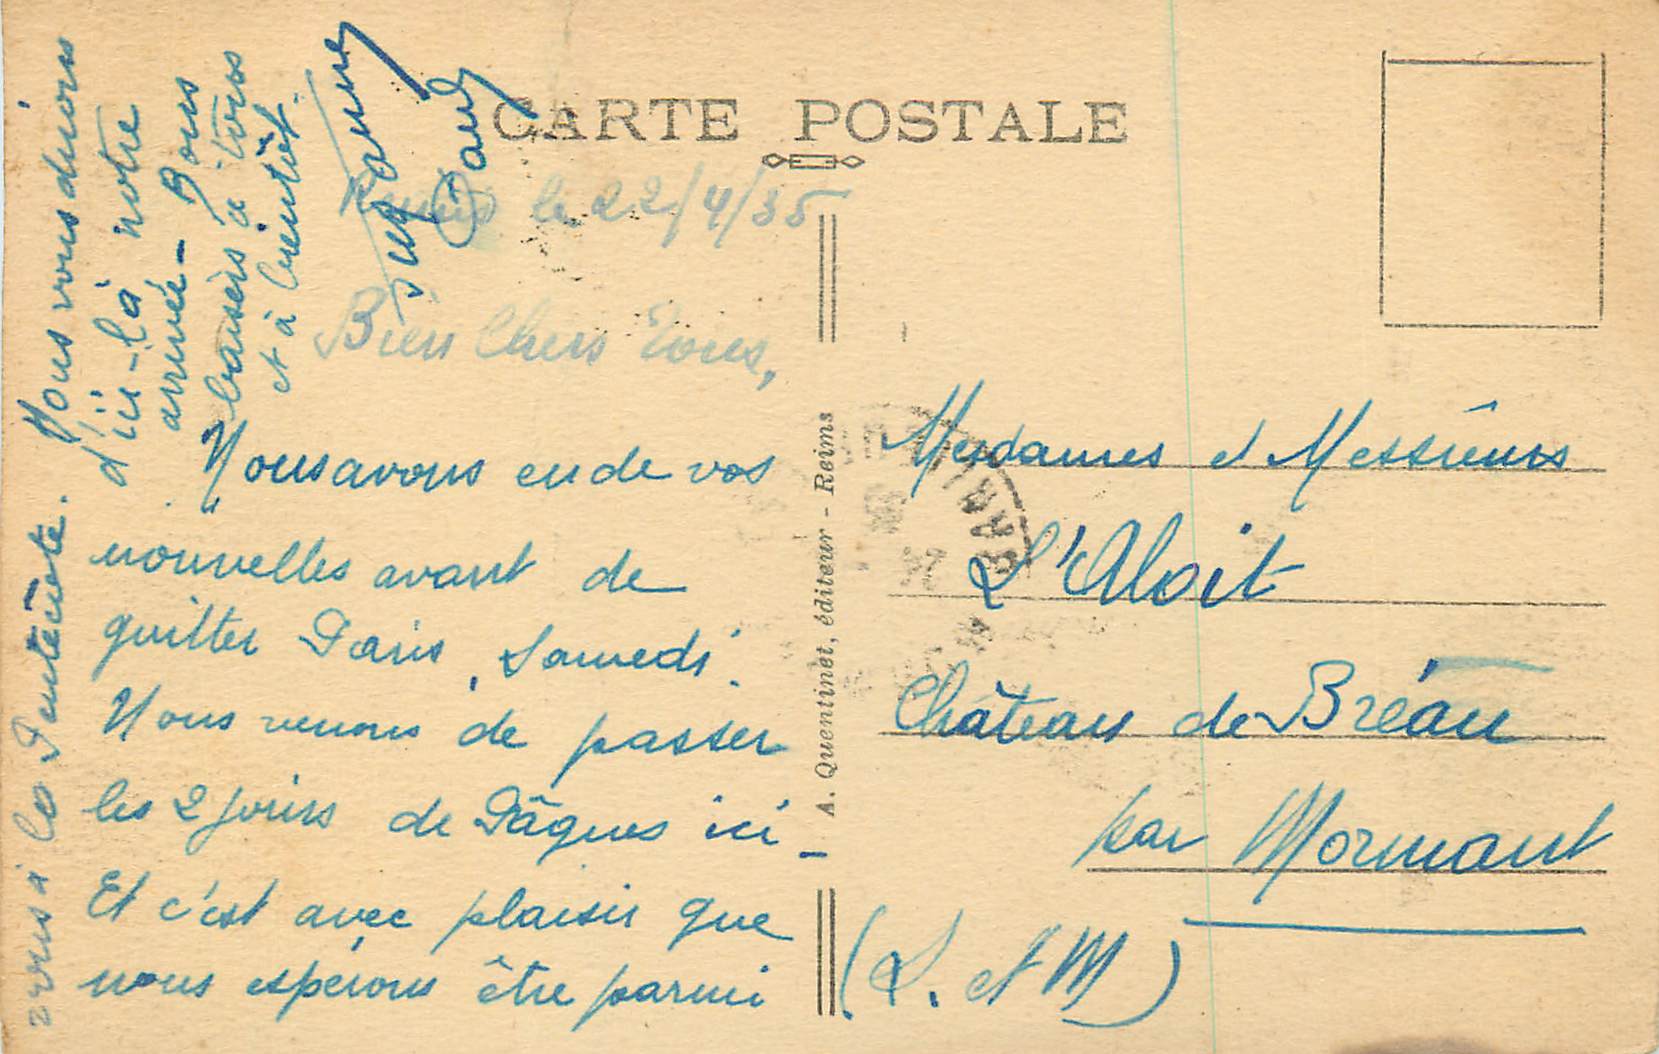 CARTE POSTALE
Reims le 22/4/35
Bien Chers Tous,
Nous avons eu de vos
nouvelles avant de
quitter Paris, Samedi.
Nous venons de passer
les 2 jours de Pâques ici -
Et c'est avec plaisir que
nous espérons être parmi
vous à la Pentecôte. Nous vous dirons
d'ici-là notre
arrivée - Bons
baisers à tous
et à bientôt.
Suzanne
Paul
A. Quentinet, éditeur - Reims
Mesdames et Messieurs
L'Aloit
Château de Bréau
par Mormant
(S. et M)